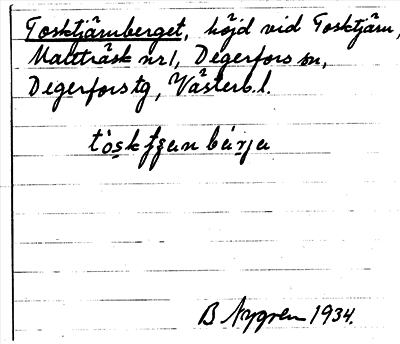 Tosktjärnberget, höjd vid Tosktjärn,
Mattträsk nr 1, Degerfors sn,
Degerfors tg, Västerb. l.
B Nygren 1934.